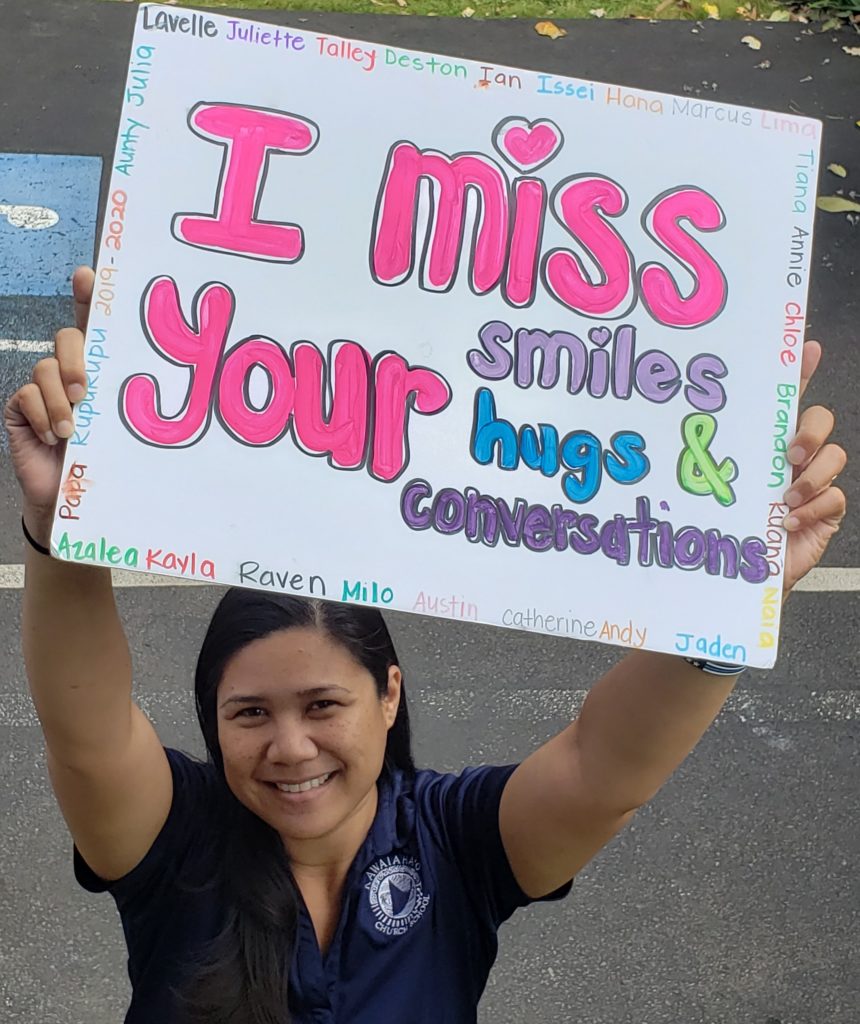 Lavelle Juliette Talley Deston Ian Issei Hana Marcus Lima
Tiana Annie Chloe Brandon Ruana Naia
I miss
Your smiles
hugs &
conversations
Papa Kupukupu 2019-2020 Aunty Julia
Azalea Kayla Raven Milo Austin Catherine Andy Jaden
KAWAIAHA'O
CHURCH SCHOOL